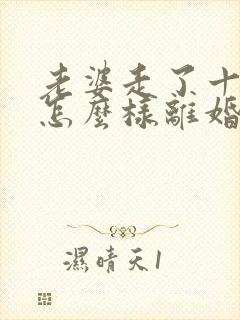 老婆走了十
怎麼樣離婚
濕晴天1